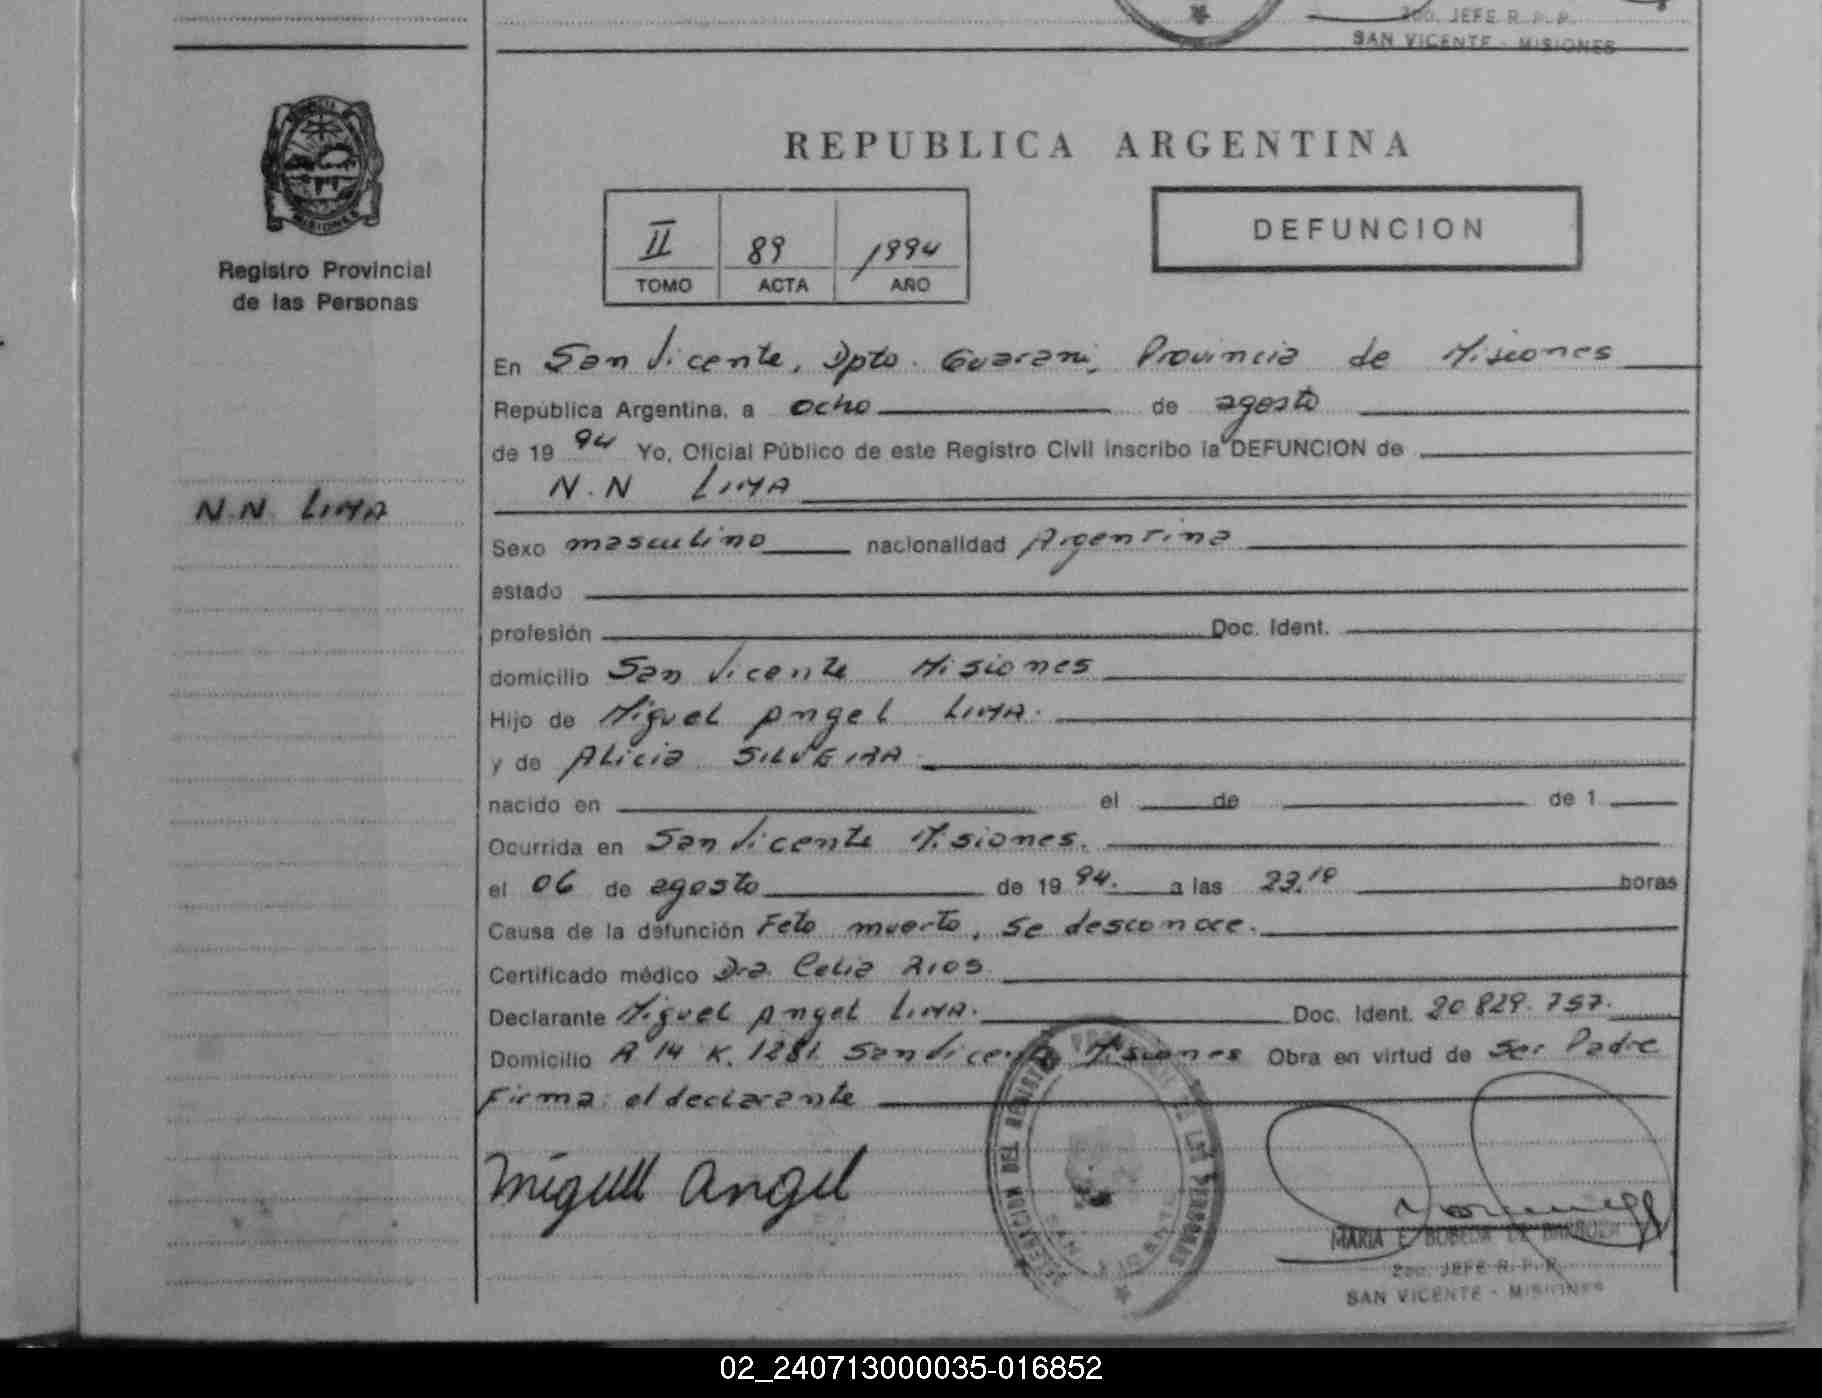 2do. JEFE R. P. P.
SAN VICENTE - MISIONES
MISIONES
Registro Provincial
de las Personas
N.N. LIMA
REPUBLICA ARGENTINA
II 89 1994
TOMO ACTA AÑO
DEFUNCION
En San Vicente, Dpto. Guarani, Provincia de Misiones
República Argentina, a ocho de agosto
de 1994 Yo, Oficial Público de este Registro Civil inscribo la DEFUNCION de
N.N LIMA
Sexo masculino nacionalidad Argentina
estado
profesión Doc. Ident.
domicilio San Vicente Misiones
Hijo de Miguel Angel LIMA.
y de Alicia SILVEIRA
nacido en el de de 1
Ocurrida en San Vicente Misiones.
el 06 de agosto de 1994. a las horas
Causa de la defunción Feto muerto, se desconoce.
Certificado médico Dra. Celia RIOS
Declarante Miguel Angel LIMA. Doc. Ident. 20 829.757.
Domicilio R 14 K. 1281 San Vicente Misiones Obra en virtud de ser Padre
Firma: el declarante
Miguel Angel
DELEGACION DEL REGISTRO PROVINCIAL DE LAS PERSONAS
SAN VICENTE
MARIA E. BOBEDA DE BARBOZA
2do. JEFE R. P. P.
SAN VICENTE - MISIONES
02_240713000035-016852